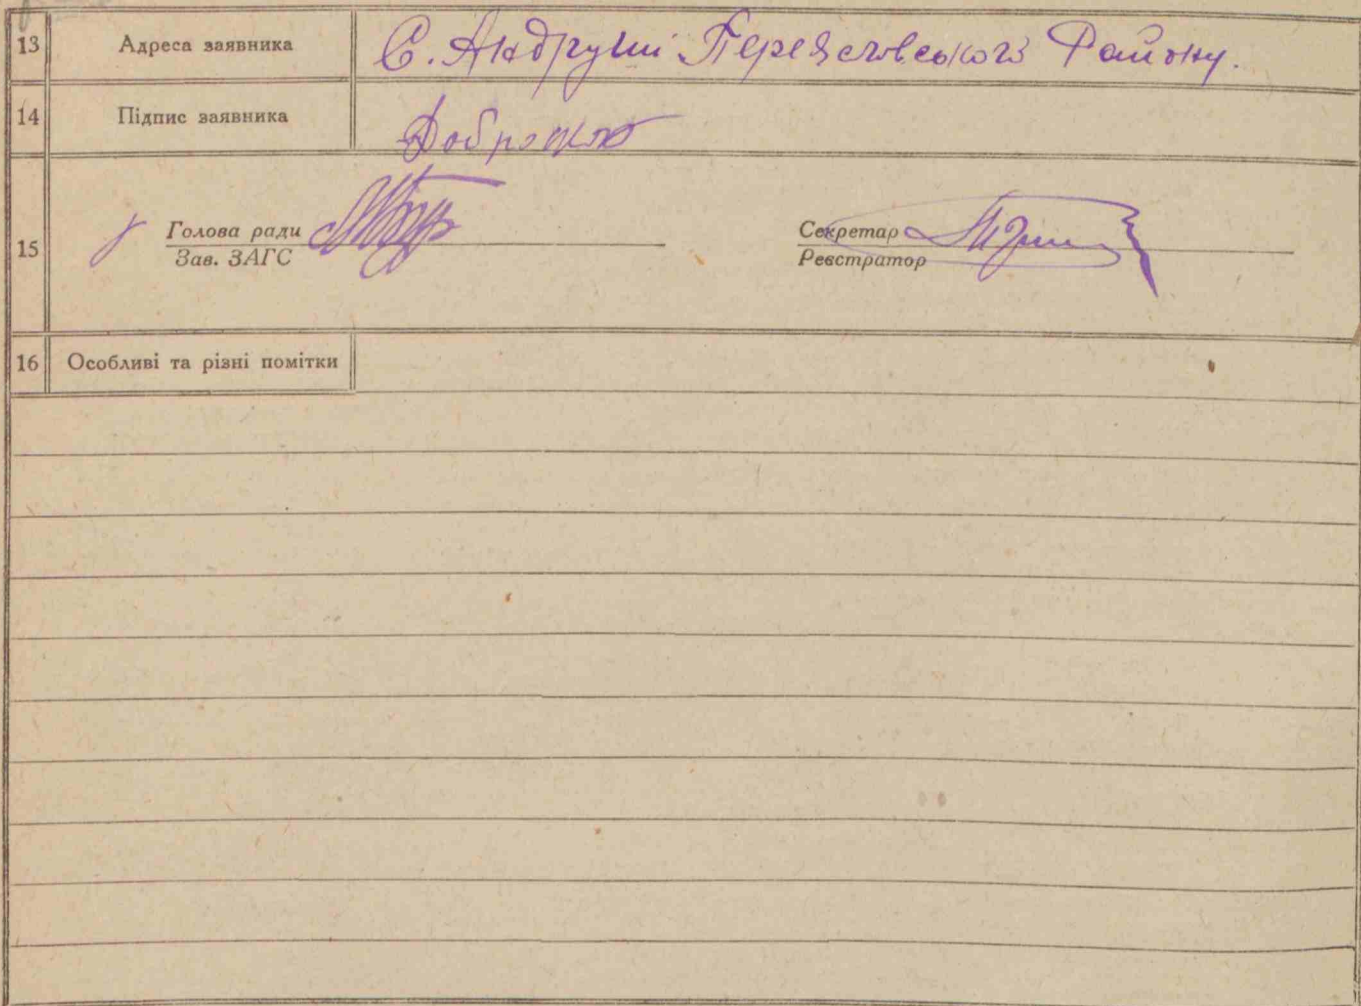 13 Адреса заявника С. Андруші Переяславського Району.
14 Підпис заявника
15 Голова ради Секретар
Зав. ЗАГС Реєстратор
16 Особливі та різні помітки